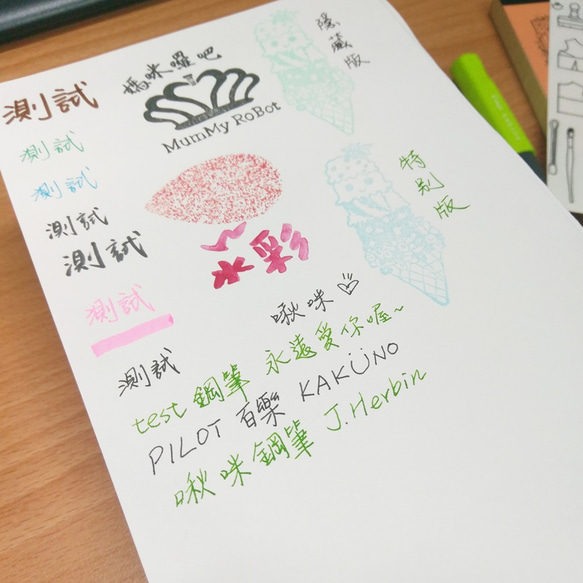 媽咪囉吧
MumMy RoBot
隱藏版
測試
測試
測試
測試
測試
特別版
水彩
測試
啾咪
測試
test 鋼筆 永遠愛你喔~
PILOT 百樂 KAKÜNO
啾咪鋼筆 J.Herbin